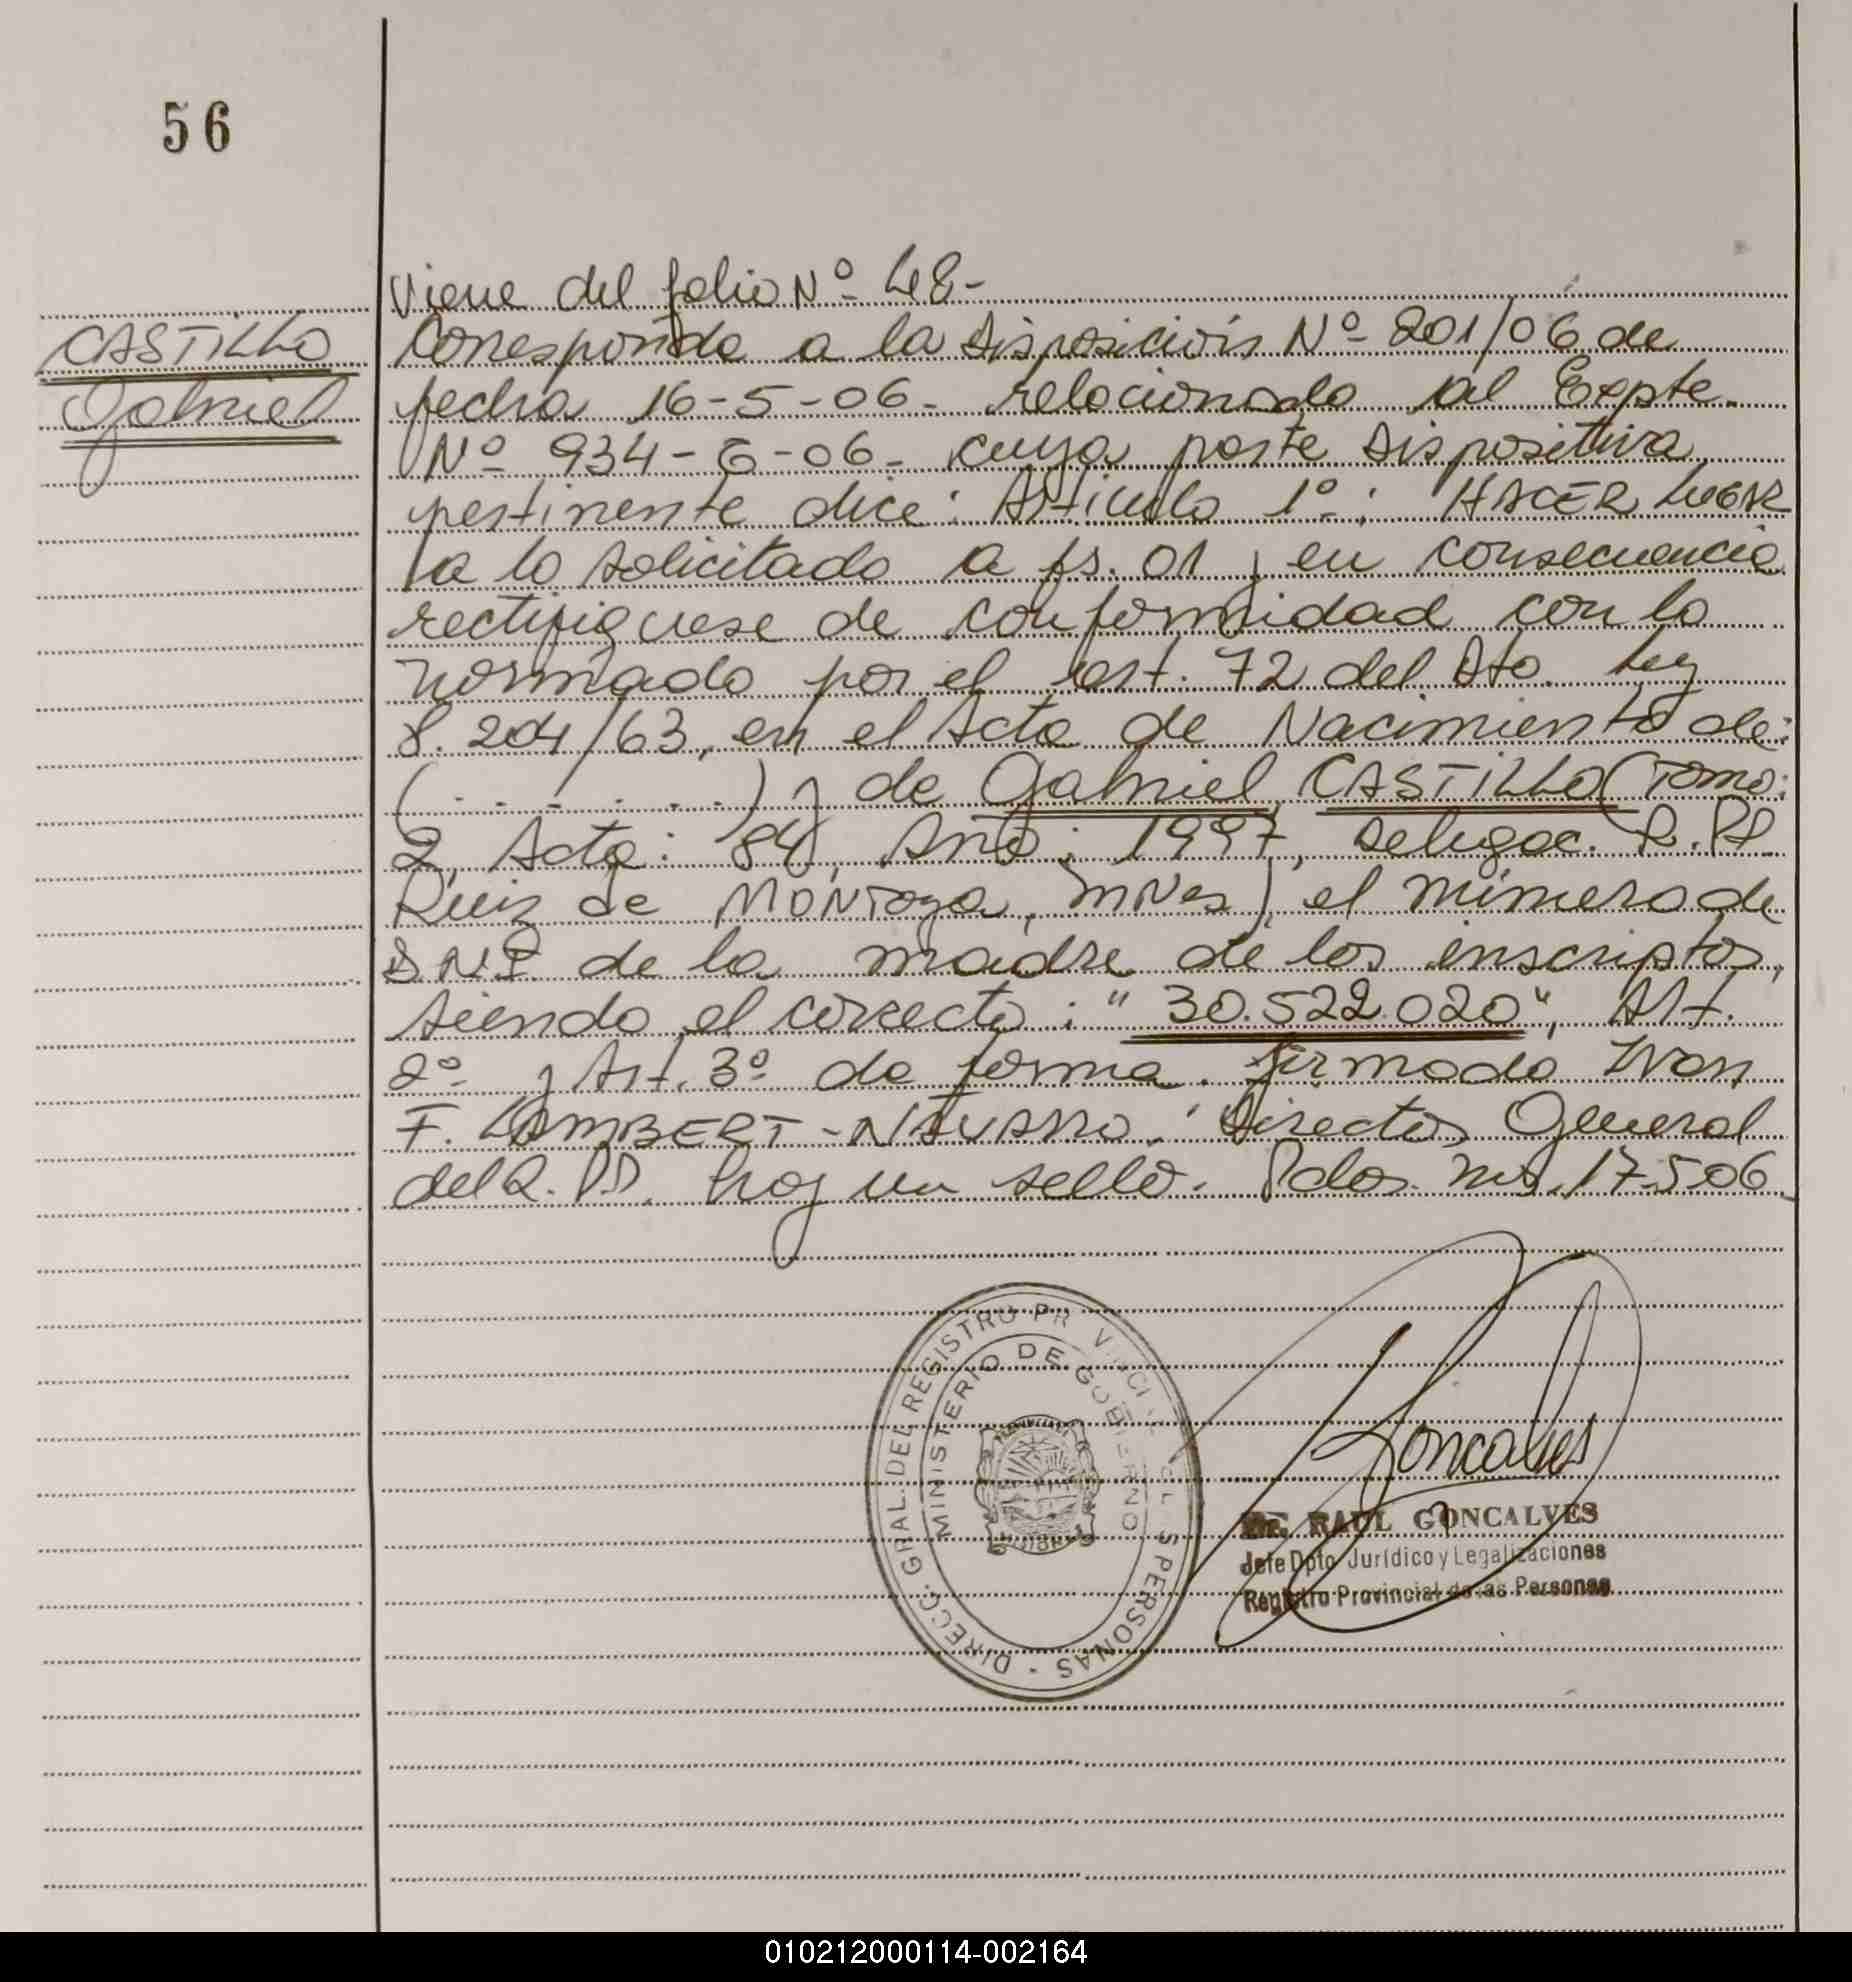 56
CASTILLO
Gabriel
Viene del folio Nº 48-
Corresponde a la Disposición Nº 201/06 de
fecha 16-5-06- relacionado al Expte.
Nº 934-G-06- cuya parte dispositiva
pertinente dice: Articulo 1º: HACER LUGAR
a lo solicitado a fs. 01 y en consecuencia
rectifiquese de conformidad con lo
normado por el art. 72 del Dto. Ley
8.204/63, en el Acta de Nacimiento de:
(. . . . . .) y de Gabriel CASTILLO (Tomo:
2, Acta: 84, Año: 1997, Delegac. R.PP.
Ruiz de MONToya, Mnes), el número de
D.N.I. de la madre de los inscriptos,
siendo el correcto: "30.522.020", Art.
2º y Art. 3º de forma. firmado Ivan
F. LAMBERT-NAVARRO. Director General
del R.PP. hay un sello. Pdas. Mns. 17.5.06-
DIRECC. GRAL. DEL REGISTRO PR VINCI L DE L S PERSONAS
MINISTERIO DE GOBIERNO
Goncalves
RAUL GONCALVES
Jefe Dpto. Jurídico y Legalizaciones
Registro Provincial de las Personas
010212000114-002164